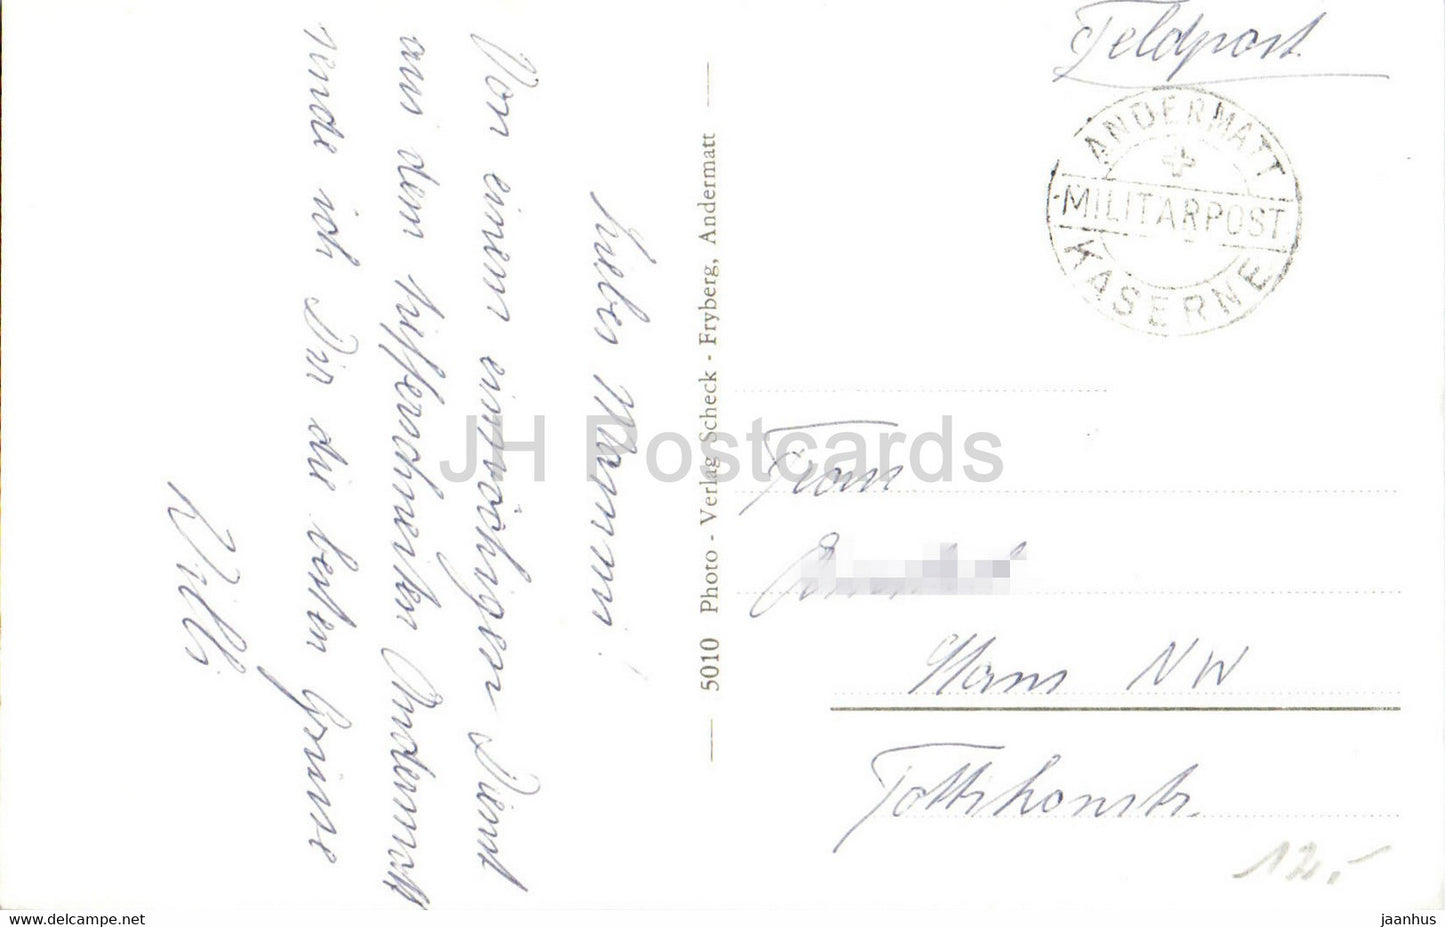 Feldpost
ANDERMATT
MILITARPOST
KASERNE
Liebes Mammi!
Von einem einwöchigen Dienst
aus dem tiefverschneiten Andermatt
sende ich Dir die besten Grüsse
Willi
5010 Photo - Verlag Scheck - Fryberg, Andermatt
Frau
Stans NW
12.-
JH Postcards
www.delcampe.net
jaanhus